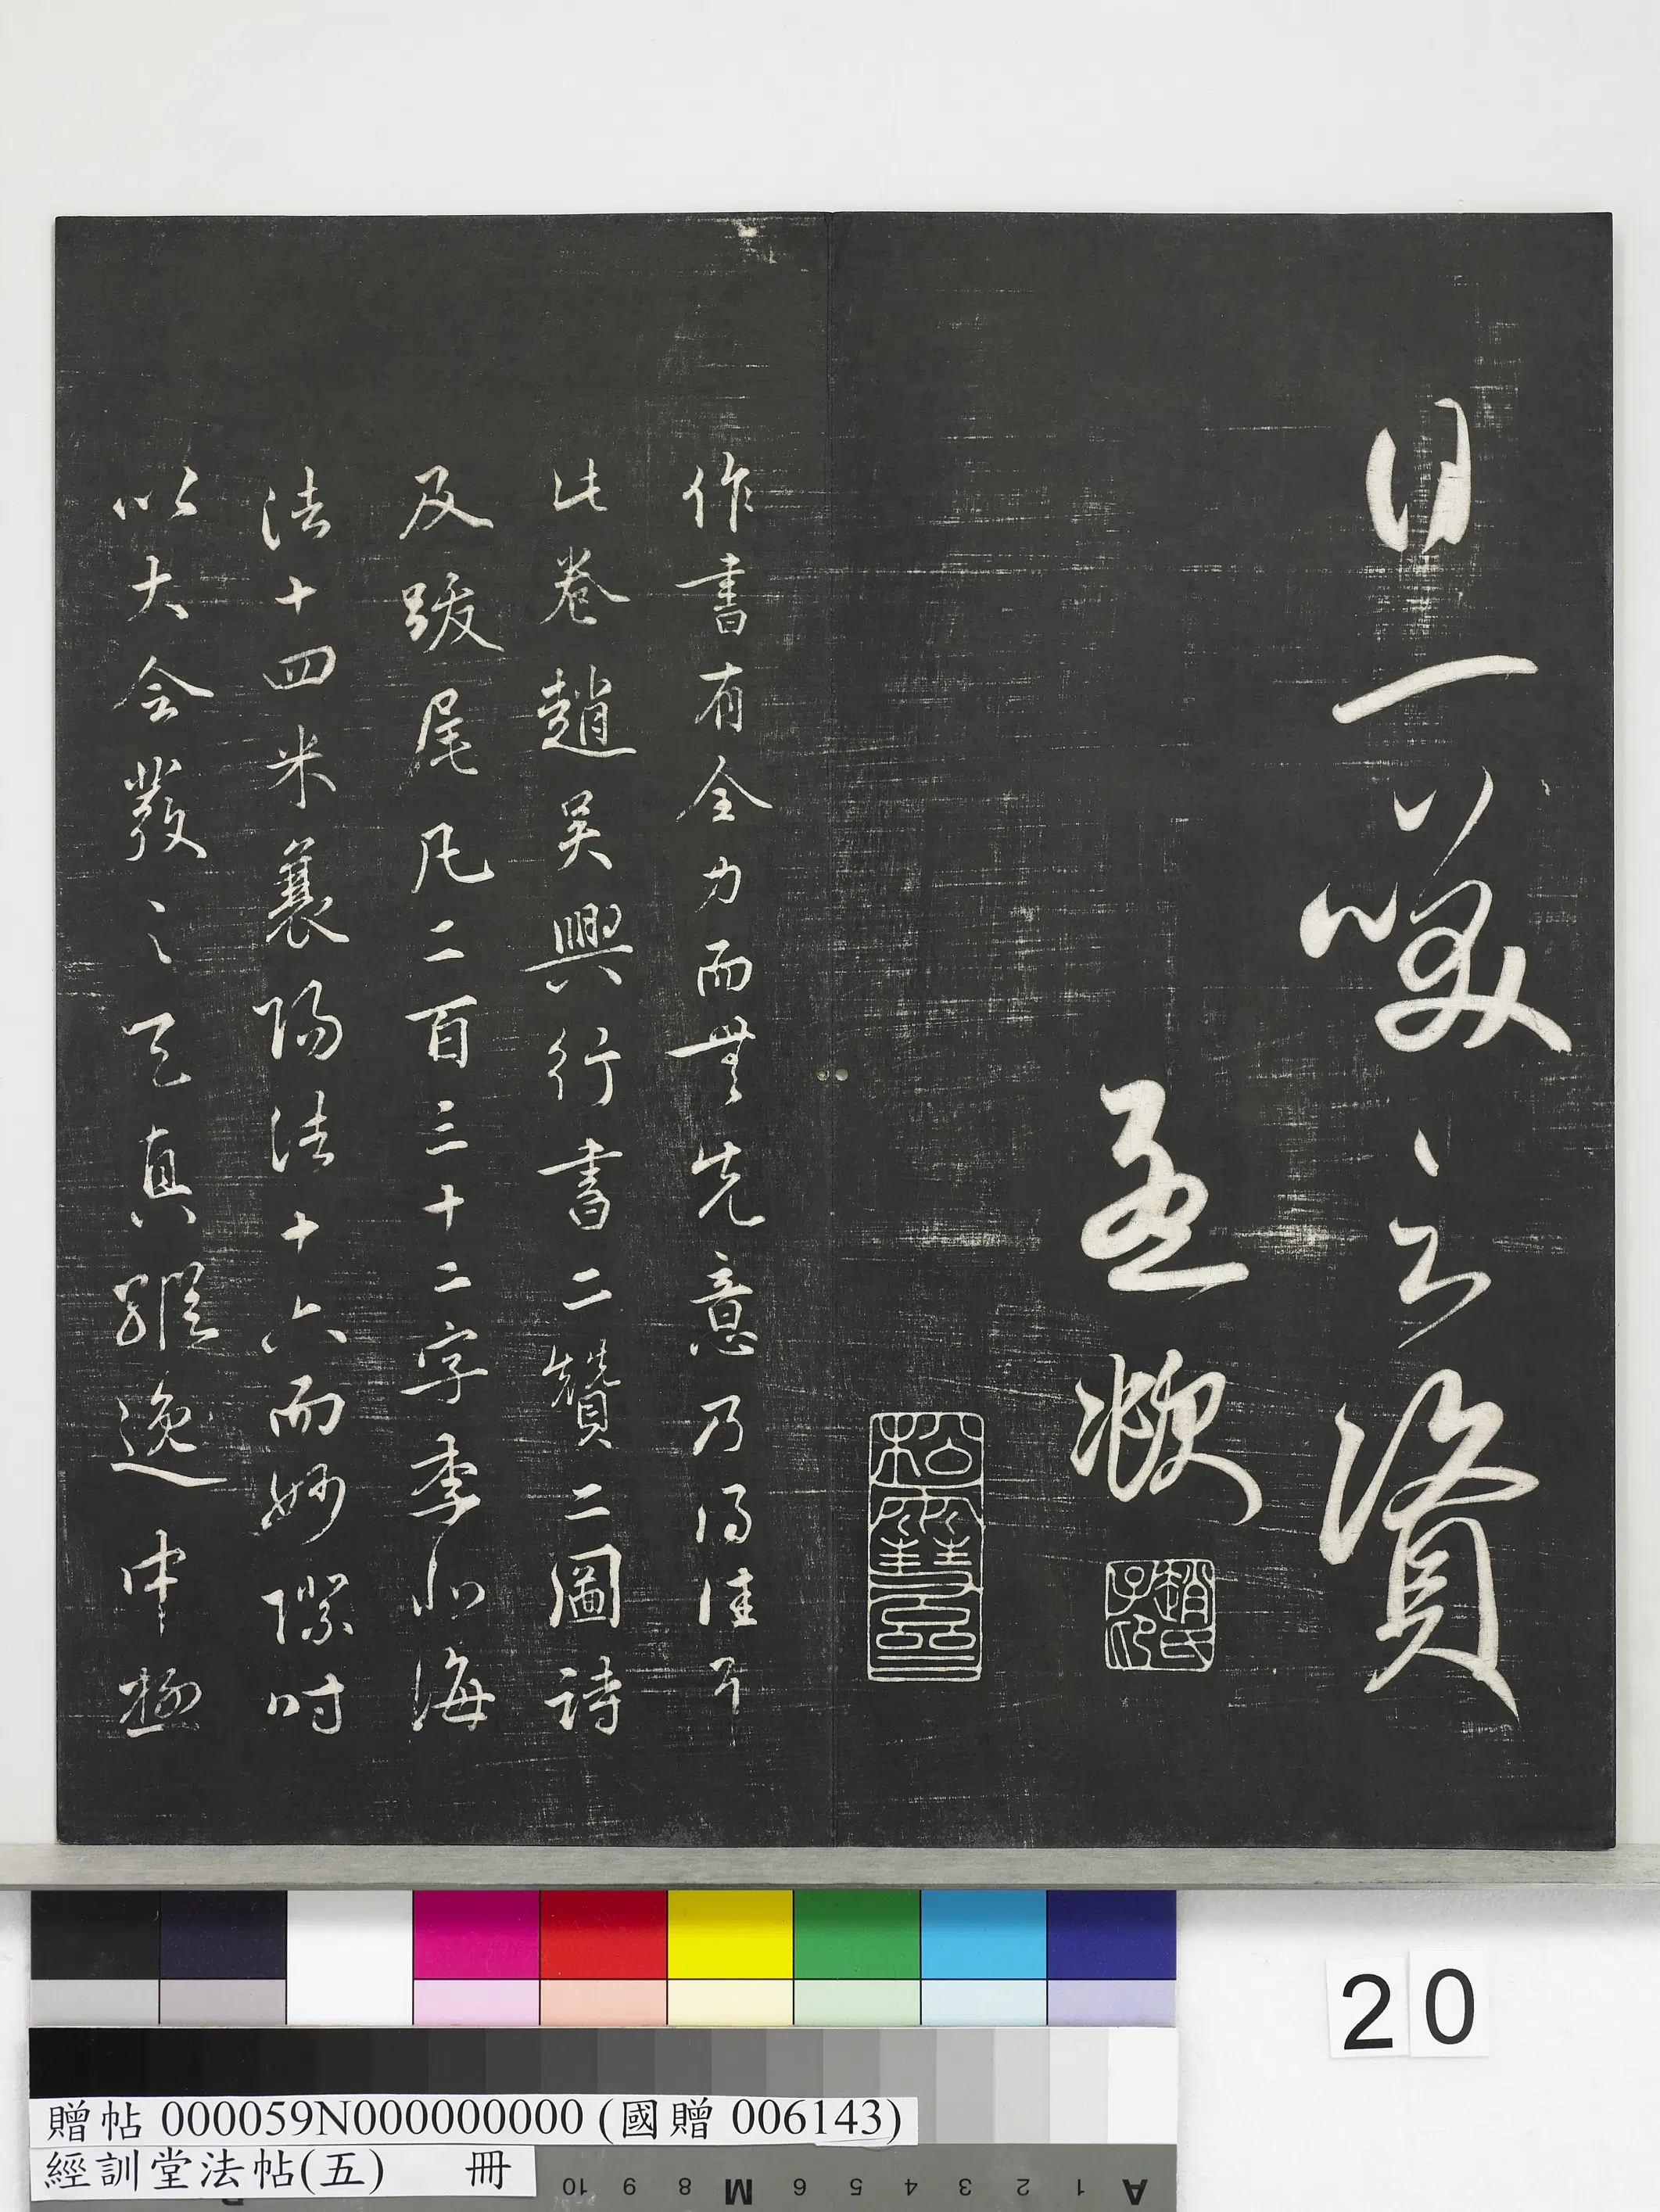 一笑之資
孟頫
趙氏子昂
松雪齋
作書有全力而無先意乃得佳耳
此卷趙吳興行書二贊二圖詩
及跋尾凡二百三十二字李北海
法十四米襄陽法十六而妙際時
以大令發之天真縱逸中極
20
贈帖 000059N000000000 (國贈 006143)
經訓堂法帖(五) 冊
10 9 8 M 6 5 4 3 2 1 A